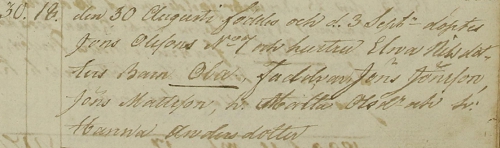 30. 18. den 30 Augusti föddes och d. 3 Septr döptes
Jöns Olssons No 7 och hustru Elna Nilsdot-
ters Barn Ola. Faddrar Jöns Jönsson,
Jöns Mattsson, h. Martta Olsdr och h.
Hanna Andersdotter